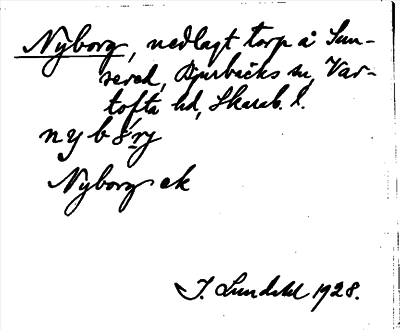 Nyborg, nedlagt torp å Sun-
nered, Djurbäcks sn, Var-
tofta hd, Skarab. l.
nybóry
Nyborg ek
J. Lundahl 1928.